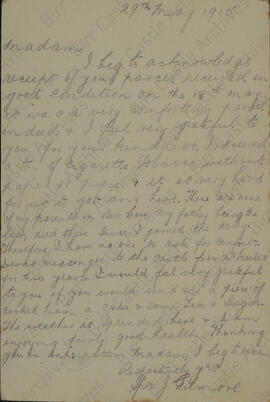 29th May 1915
Madam,
I beg to acknowledge
receipt of your parcel received in
good condition on the 18th May
it was a very comforting parcel
indeed & I feel very grateful to
you for your kindness. I received
a tin of cigarette Tobacco without
paper or pipe & it is very hard
for us to get any here. There are none
of my parents in Birr now, my father being the
last, died there since I joined the Army
Therefore I have no one to ask for comfort.
messenger to the Castle from
for three years. I would feel very grateful
to you if you would send me a piece of
cooked ham, a cake & some Tea & Sugar.
The weather is splendid here & I am
enjoying fairly good health. Thanking
you in anticipation Madam, I beg to remain
Respectively yrs
Pte J. Gilmore.